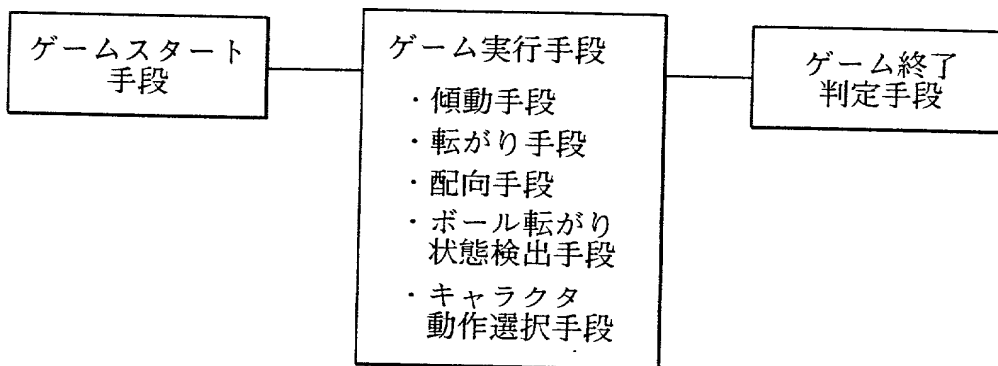 ゲームスタート
手段
ゲーム実行手段
・傾動手段
・転がり手段
・配向手段
・ボール転がり
状態検出手段
・キャラクタ
動作選択手段
ゲーム終了
判定手段